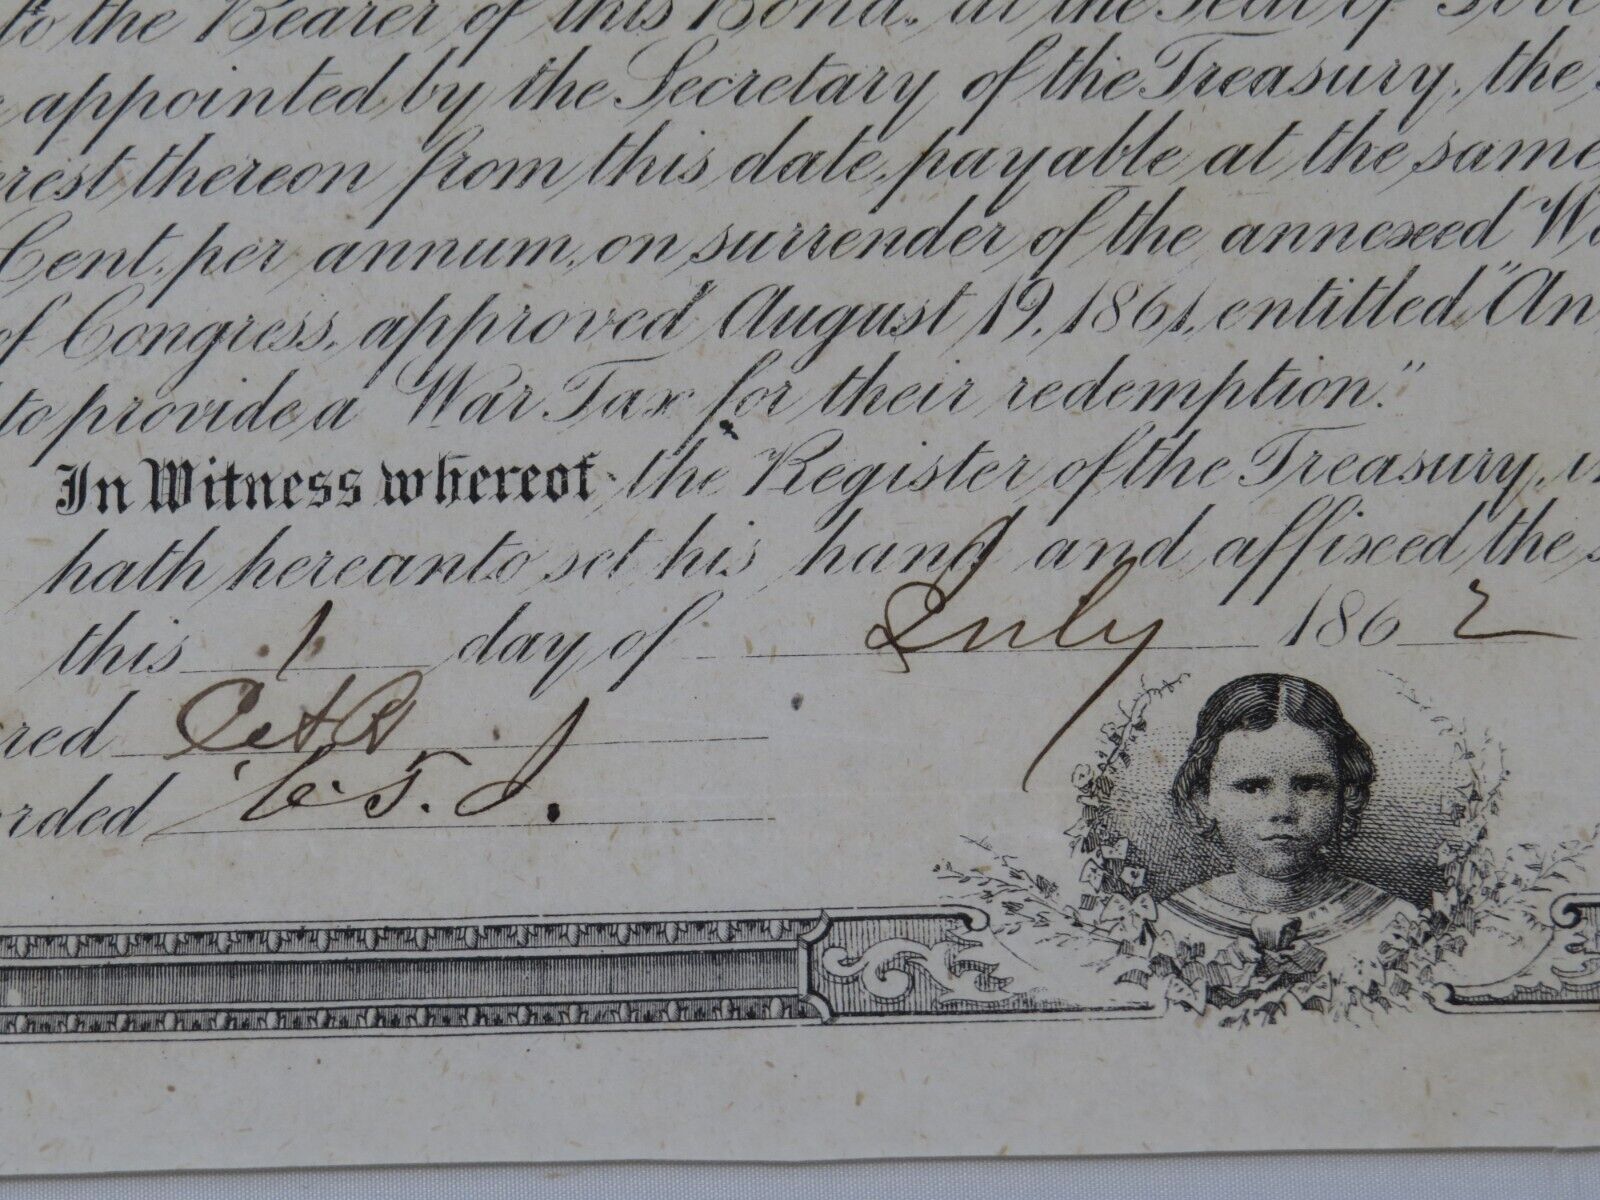 to the Bearer of this Bond, at the Seat of
appointed by the Secretary of the Treasury, the
thereon from this date, payable at the same
Cent. per annum, on surrender of the annexed
of Congress, approved August 19, 1861, entitled "An
to provide a War Tax for their redemption."
In Witness whereof the Register of the Treasury,
hath hereunto set his hand and affixed the
this 1 day of July 1862
C. T. J.